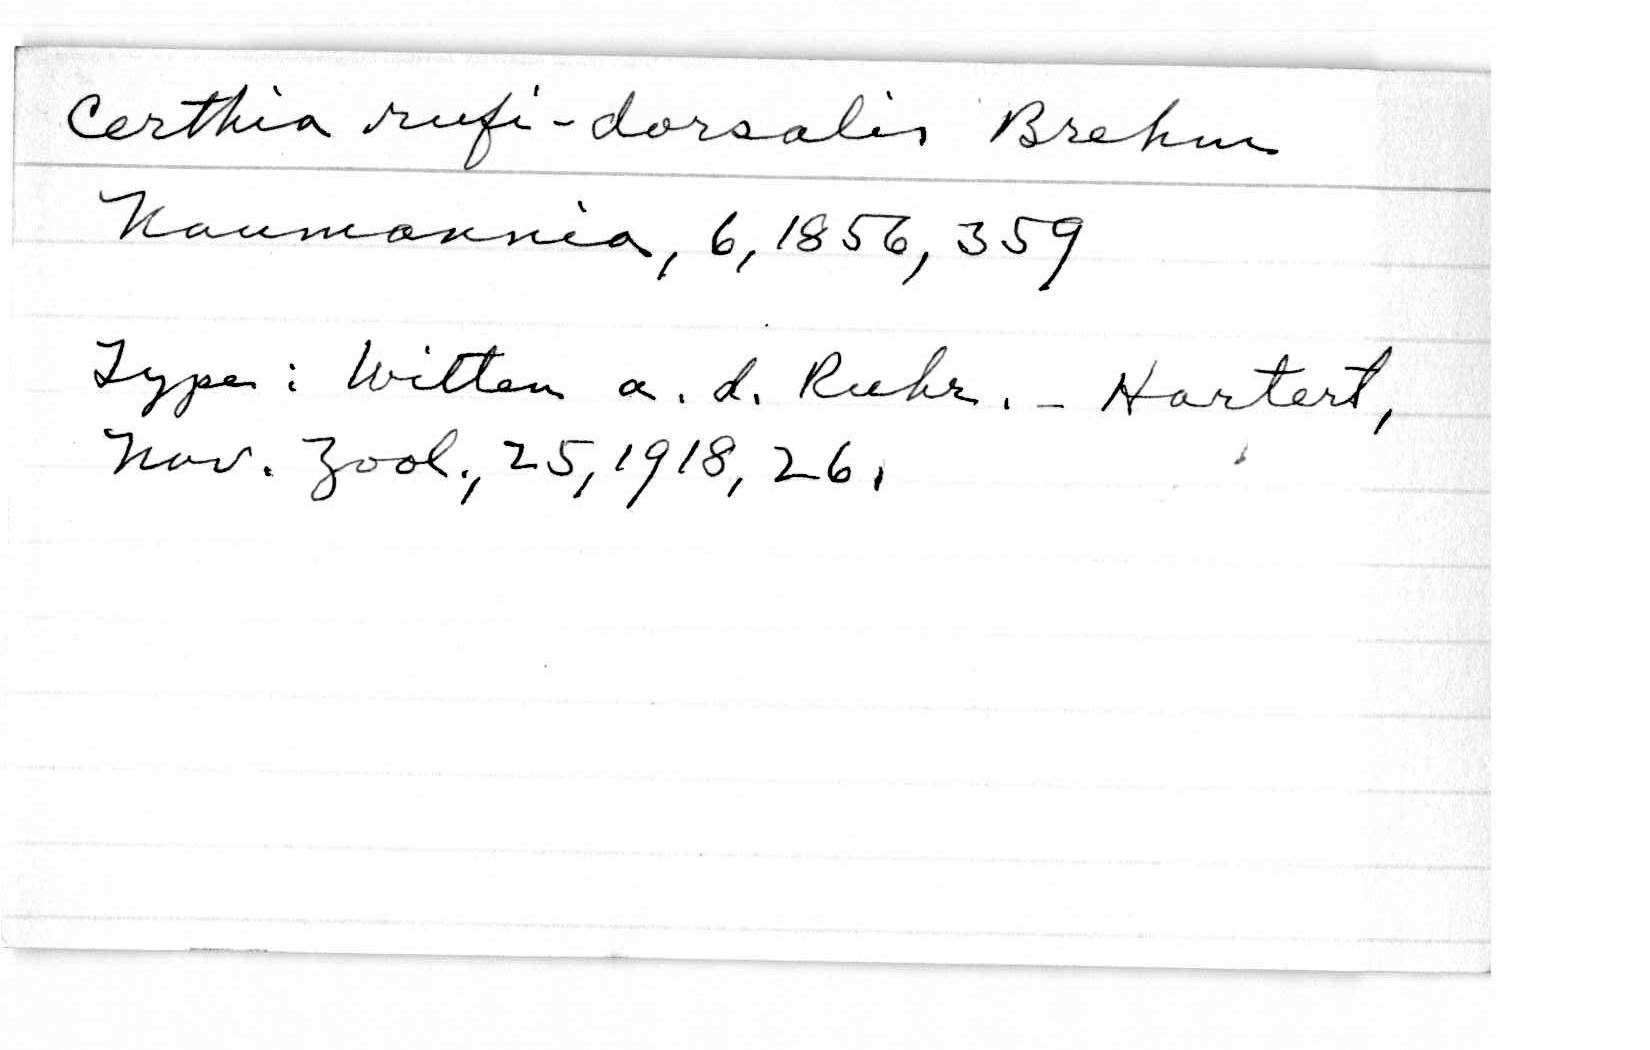 Certhia rufi-dorsalis Brehm
Naumannia, 6, 1856, 359
Type: Witten a. d. Ruhr. - Hartert,
Nov. Zool., 25, 1918, 26.